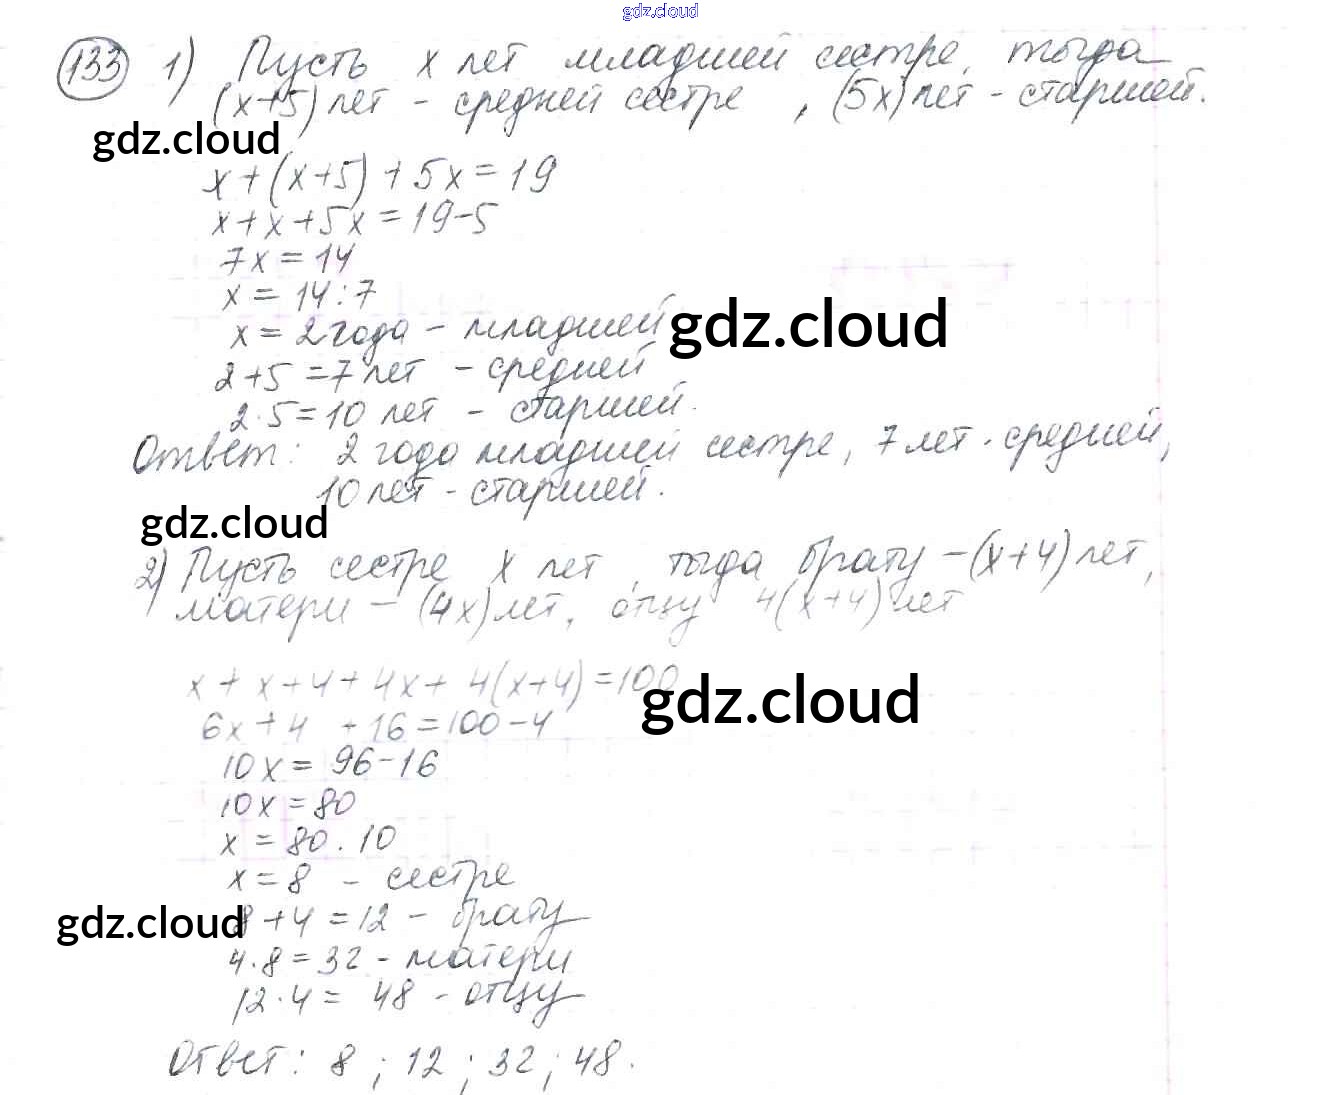 gdz.cloud
133 1) Пусть х лет младшей сестре, тогда
(х+5) лет - средней сестре, (5х) лет - старшей.
gdz.cloud
х+(х+5)+5х=19
х+х+5х=19-5
7х=14
х=14:7
х=2 года - младшей
gdz.cloud
2+5=7 лет - средней
2·5=10 лет - старшей.
Ответ: 2 года младшей сестре, 7 лет - средней,
10 лет - старшей.
gdz.cloud
2) Пусть сестре х лет, тогда брату - (х+4) лет,
матери - (4х) лет, отцу 4(х+4) лет
х+х+4+4х+4(х+4)=100
gdz.cloud
6х+4 +16=100-4
10х=96-16
10х=80
х=80.10
х=8 - сестре
gdz.cloud
8+4=12 - брату
4·8=32 - матери
12·4=48 - отцу
Ответ: 8; 12; 32; 48.